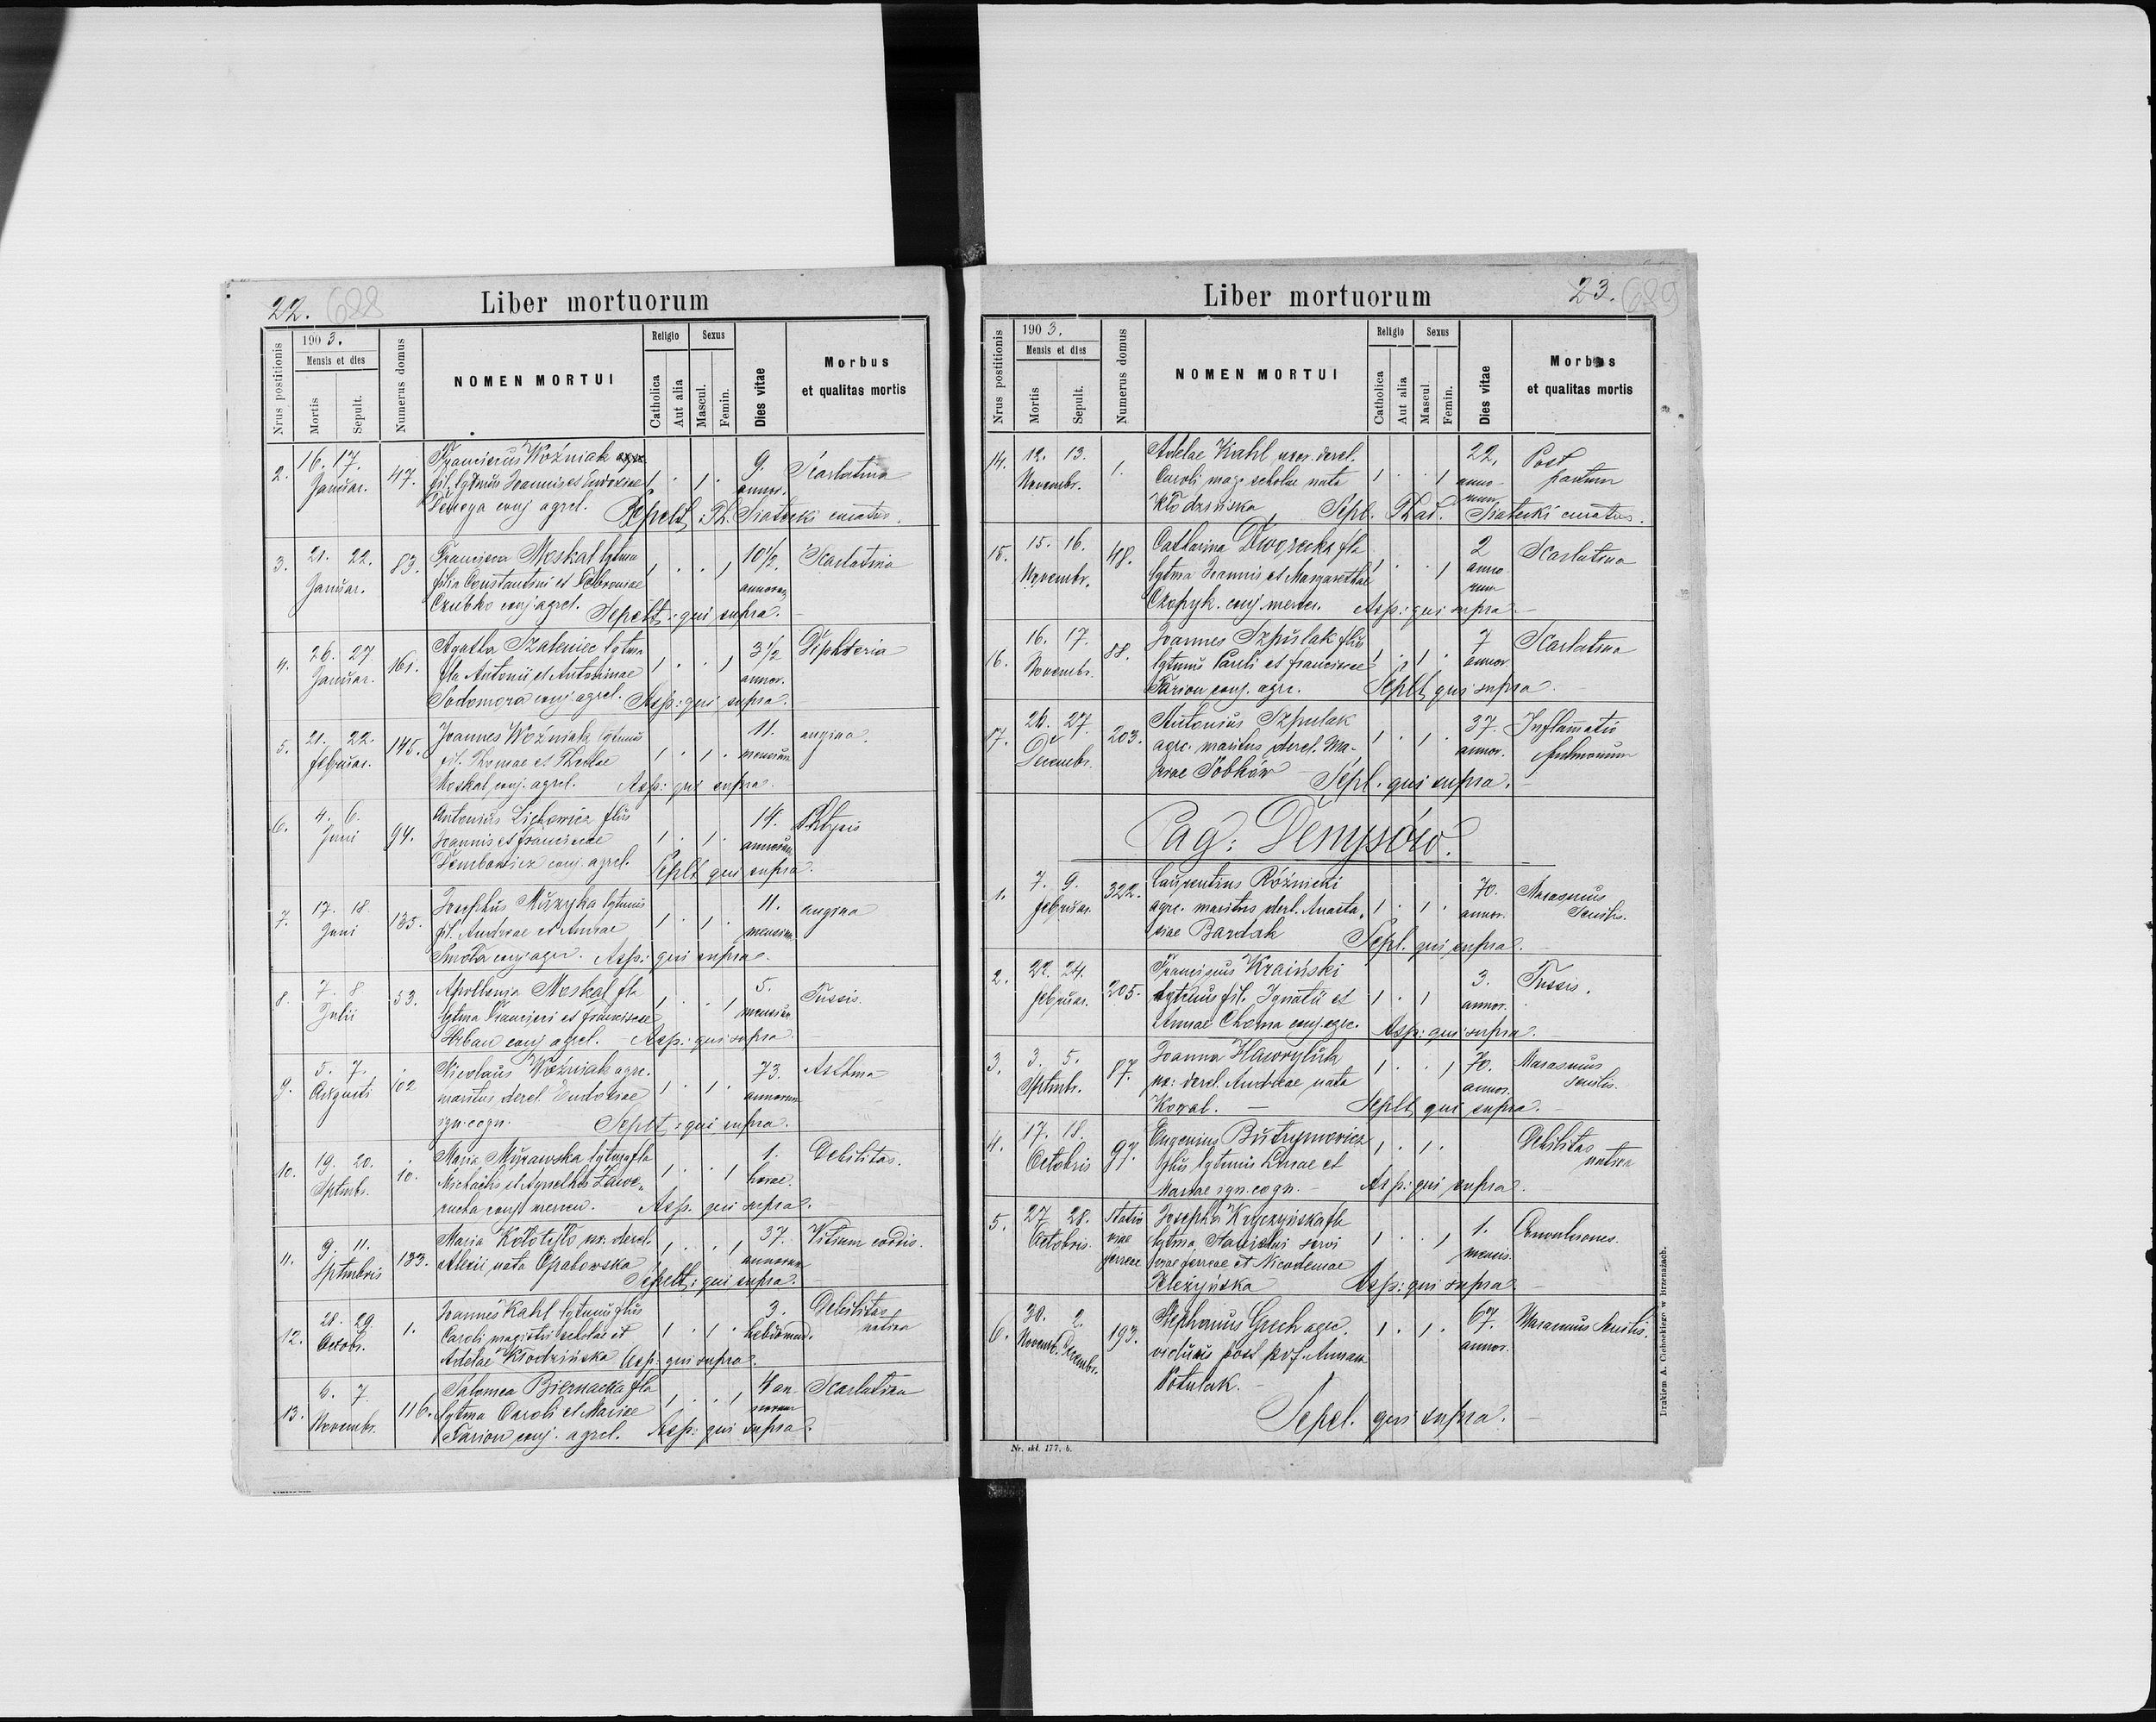 22. 688
Liber mortuorum
Nrus postitionis
1903.
Mensis et dies
Mortis
Sepult.
Numerus domus
NOMEN MORTUI
Religio
Catholica
Aut alia
Sexus
Mascul.
Femin.
Dies vitae
Morbus
et qualitas mortis
2. 16. 17. Januar. 47. Franciscus Woźniak
fil. lgtmus Joannis et Eudoxiae 1 . 1 . 9. annor. Scarlatina
conj agrcl. Sepelt: Th. Siatecki curatus.
3. 21. 22. Januar. 83. Francisca Moskal lgtma
filia Constantini et Febroniae 1 . . 1 10½ annorum Scarlatina
Czubko conj. agrcl. Sepelt: qui supra.
4. 26. 27 Januar. 161. Agatha Szaleniec lgtma
fla Antonii et Antoninae 1 . . 1 3½ annor. Diphteria
Sodomora conj agrcl. Asp: qui supra.
5. 21. 22. februar. 145. Joannes Woźniak lgtmus
fil. Thomae et Theclae 1 . 1 . 11. mensium angina.
Moskal, conj. agrcl. Asp: qui supra.
6. 4. 6. Juni 94. Antonius Lichowicz flius
Joannis et Franciscae 1 . 1 . 14. annorum Phtysis
Dembowicz conj. agrcl. Seplt qui supra.
7. 17. 18. Juni 135. Josephus Muzyka lgtmus
fil. Andreae et Annae 1 . 1 . 11. mensium angina
Smoła conj. agrc. Asp: qui supra.
8. 7. 8 Julii 53. Apollonia Moskal fla
lgtma Francisci et Franciscae 1 . . 1 5. mensium Tussis.
Urban conj agrcl. Asp: qui supra.
9. 5. 7. Augusti 102 Nicolaus Woźniak agrc.
maritus derel. Eudoxiae 1 . 1 . 73. annorum Asthma
ign. cogn. Seplt: qui supra.
10. 19. 20. Sptmbr. 10. Maria Murawska lgtma fla
Michaëlis et Agnethis Zawe- 1 . . 1 1. horae. Debilitas.
rucha conj mercen. Asp. qui supra.
11. 9. 11. Sptmbris 133. Maria Kołotyło ux. derel.
Alexii nata Opałowska 1 . . 1 37. annorum Vitium cordis.
Sepelt: qui supra.
12. 28. 29. Octobr. 1. Joannes Kahl lgtmus flius
Caroli magistri scholae et 1 . 1 . 3. hebdomad. Debilitas nativa
Adelae Kłodzińska Asp: qui supra.
13. 6. 7. Novembr. 116. Salomea Biernacka fla
lgtma Caroli et Mariae 1 . . 1 4 annorum Scarlatina
Farion conj. agrcl. Asp: qui supra.
Liber mortuorum
23. 689
Nrus postitionis
1903.
Mensis et dies
Mortis
Sepult.
Numerus domus
NOMEN MORTUI
Religio
Catholica
Aut alia
Sexus
Mascul
Femin.
Dies vitae
Morbus
et qualitas mortis
14. 12. 13. Novembr. 1. Adelae Kahl uxor. derel.
Caroli mag. scholae nata 1 . . 1 22. annorum Post partum
Kłodzińska, Sepl. Thad. Siatecki curatus.
15. 15. 16. Novembr. 48. Catharina Dworecka fla
lgtma Joannis et Margarethae 1 . . 1 2 annorum Scarlatina
Czopyk. conj. mercen. Asp: qui supra.
16. 16. 17. Novembr. 88. Joannes Szpulak flius
lgtmus Pauli et Franciscae 1 . 1 . 7 annor. Scarlatina
Farion conj. agrc. Seplt qui supra.
17. 26. 27. Decembr. 203. Antonius Szpulak
agrc. maritus derel. Ma- 1 . 1 . 37. annor. Inflamatio pulmonum
riae Sobków Sepl. qui supra.
Pag: Denysów.
1. 7. 9. februar. 322. Laurentius Różnicki
agrc. maritus derl. Anasta- 1 . 1 . 70. annor. Marasmus senilis.
siae Bardak Sepl. qui supra.
2. 22. 24. februar. 205. Franciscus Kraiński
lgtmus fil. Ignatii et 1 . 1 3. annor. Tussis.
Annae Choma conj. agrc. Asp: qui supra.
3. 3. 5. Sptmbr. 87. Joanna Hawryluk
ux: derel. Andreae nata 1 . . 1 70. annor. Marasmus senilis.
Kowal. Seplt qui supra.
4. 17. 18. Octobris 97. Eugenius Butrymowicz
flius lgtmus Lucae et 1 . 1 . Debilitas nativa
Mariae ign. cogn. Asp: qui supra.
5. 27. 28. Octobris. Statio viae ferreae Josepha Kryczyńska fla
lgtma Stanislai servi 1 . . 1 1. mensis. Convulsiones.
viae ferreae et Nicodemae
Asp: qui supra.
6. 30. Novemb. 2. Decembr. 193. Stephanus Grech agrc.
viduus post def. Annam 1 . 1 . 67. annor. Marasmus Senilis.
Potulak.
Sepel. qui supra.
Nr. skł. 177. b.
Drukiem A. Cichockiego w Brzeżanach.